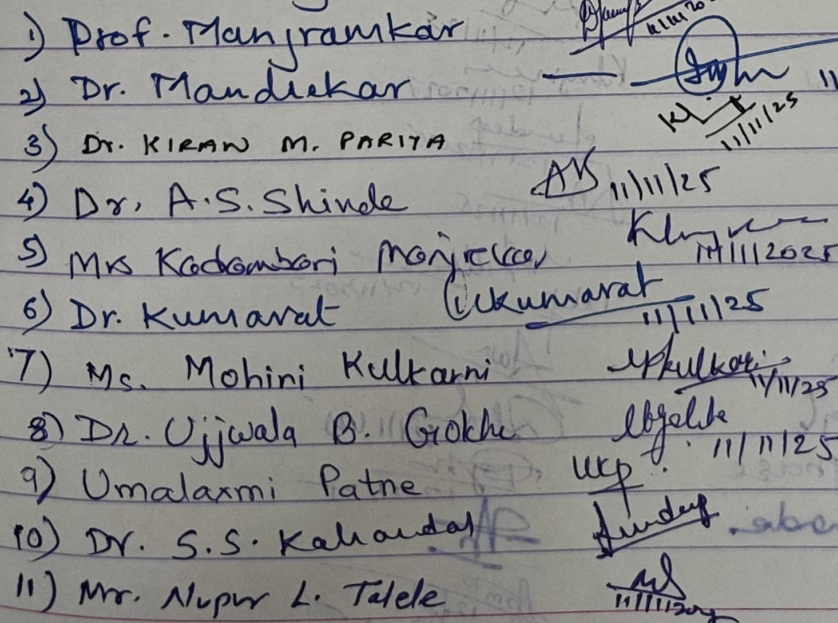 1) Prof. Manjramkar 11/11/20
2) Dr. Mandrekar 11
3) Dr. KIRAN M. PARIYA 11/11/25
4) Dr. A.S. Shinde AS 11/11/25
5) Mrs Kadambari 11/11/2025
6) Dr. Kumavat Ukumavat 11/11/25
7) Ms. Mohini Kulkarni Mkulkarni 11/11/25
8) Dr. Ujjwala B. Gokhe 11/11/25
9) Umalaxmi Patne UKP
10) Dr. S.S.
11) Mr. Nupur L. Talele 11/11/2025